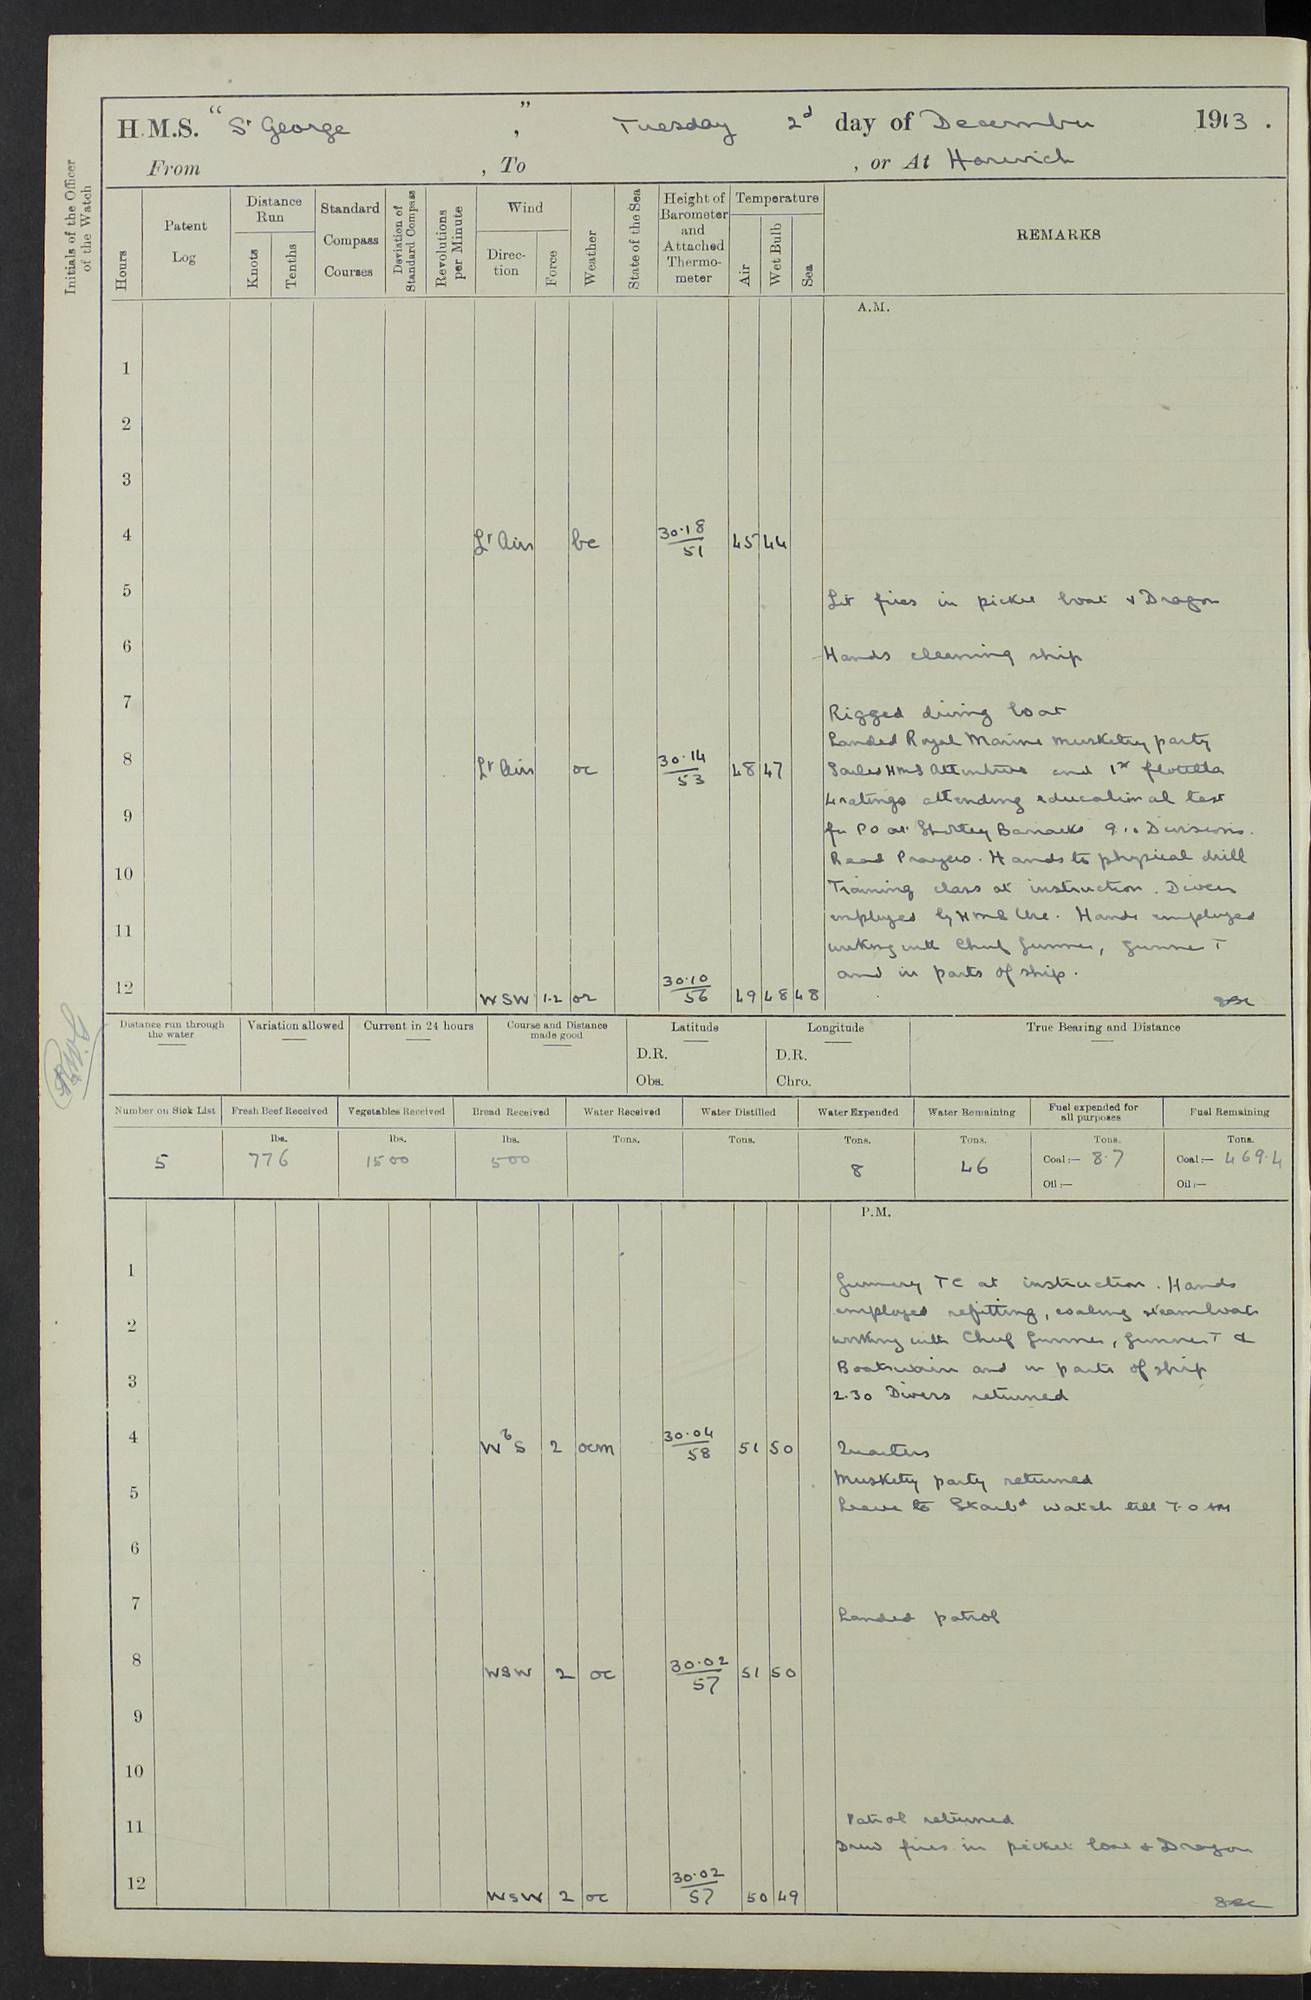 H.M.S. "St George", Tuesday 2d day of December 1913.
From , To , or At Harwich
Initials of the Officer of the Watch
Hours
Patent Log
Distance Run
Knots
Tenths
Standard Compass Courses
Deviation of Standard Compass
Revolutions per Minute
Wind
Direction
Force
Weather
State of the Sea
Height of Barometer and Attached Thermometer
Temperature
Air
Wet Bulb
Sea
REMARKS
A.M.
1
2
3
4 Lt Airs bc 30.18/51 45 44
5
Lit fires in picket boat & Dragon
6
Hands cleaning ship
7
Rigged diving boat
Landed Royal Marine musketry party
8 Lt Airs oc 30.14/53 48 47
Sailed HMS Attentive and 1st flotilla
4 ratings attending educational test
9
for PO at Shotley Barracks 9.10 Divisions.
Read Prayers. Hands to physical drill
10
Training class at instruction. Divers
employed by HMS Ure. Hands employed
11
working with Chief Gunner, Gunner T
and in parts of ship.
12 WSW 1.2 oc 30.10/56 49 48 48
Distance run through the water
Variation allowed
Current in 24 hours
Course and Distance made good
Latitude
D.R.
Obs.
Longitude
D.R.
Chro.
True Bearing and Distance
Number on Sick List
Fresh Beef Received
Vegetables Received
Bread Received
Water Received
Water Distilled
Water Expended
Water Remaining
Fuel expended for all purposes
Fuel Remaining
lbs. lbs. lbs. Tons. Tons. Tons. Tons. Tons. Tons.
5 776 1500 500 8 46 Coal:— 8.7 Coal:— 469.4
Oil:— Oil:—
P.M.
1
Gunnery TC at instruction. Hands
employed refitting, coaling steamboats
2
working with Chief Gunner, Gunner T &
Boatswain and in parts of ship
3
2.30 Divers returned
4 WbS 2 ocm 30.04/58 51 50 Quarters
Musketry party returned
5
Leave to Starbd watch till 7.0 AM
6
7
Landed patrol
8 WSW 2 oc 30.02/57 51 50
9
10
11
Patrol returned
Drew fires in picket boat & Dragon
12 WSW 2 oc 30.02/57 50 49